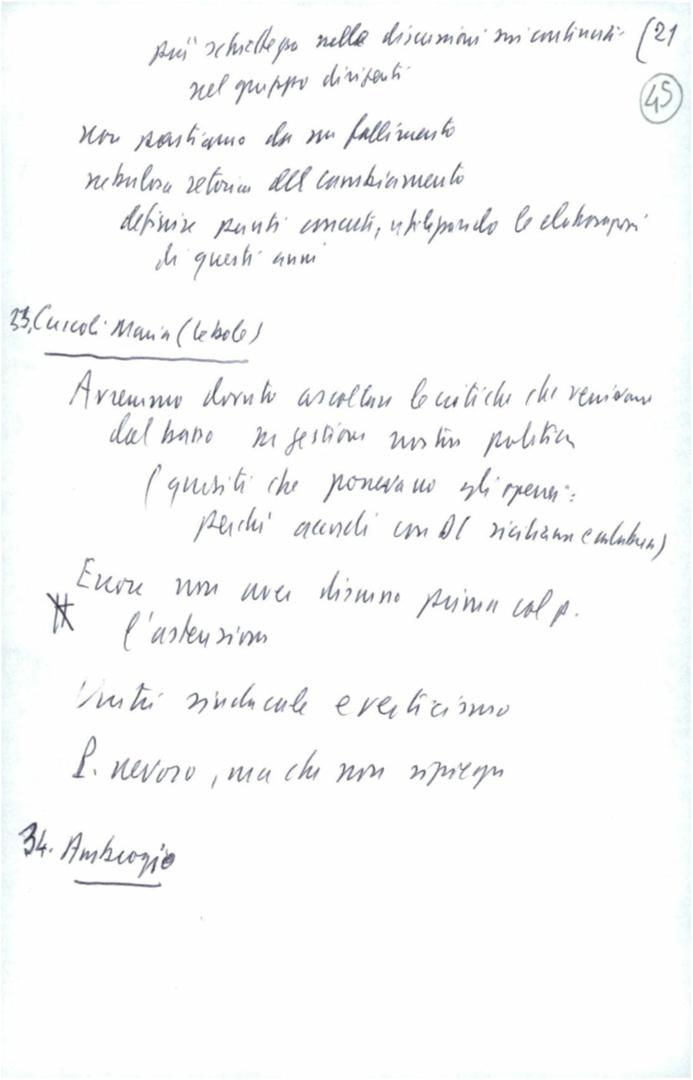 più schiettezza nelle discussioni sui contenuti (21
nel gruppo dirigenti
45
non partiamo da un fallimento
nebulosa retorica del cambiamento
definire punti concreti, utilizzando le elaborazioni
di questi anni
33. Cuccoli Maria (Lebole)
Avremmo dovuto ascoltare le critiche che venivano
dal basso su gestione nostra politica
(quesiti che ponevano gli operai:
perché accordi con DC siciliana e calabrese)
Errore non aver discusso prima col p.
l'astensione
Unità sindacale e verticismo
P. nevoso, ma che non ripiega
34. Ambrogio